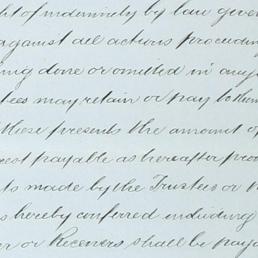 ht of indemnity by law give
against all actions proceeding
ing done or omitted in any
tees may retain or pay to them
these presents the amount of
est payable as hereafter pro
ts made by the Trustees or
s hereby conferred including
er or Receivers shall be paya